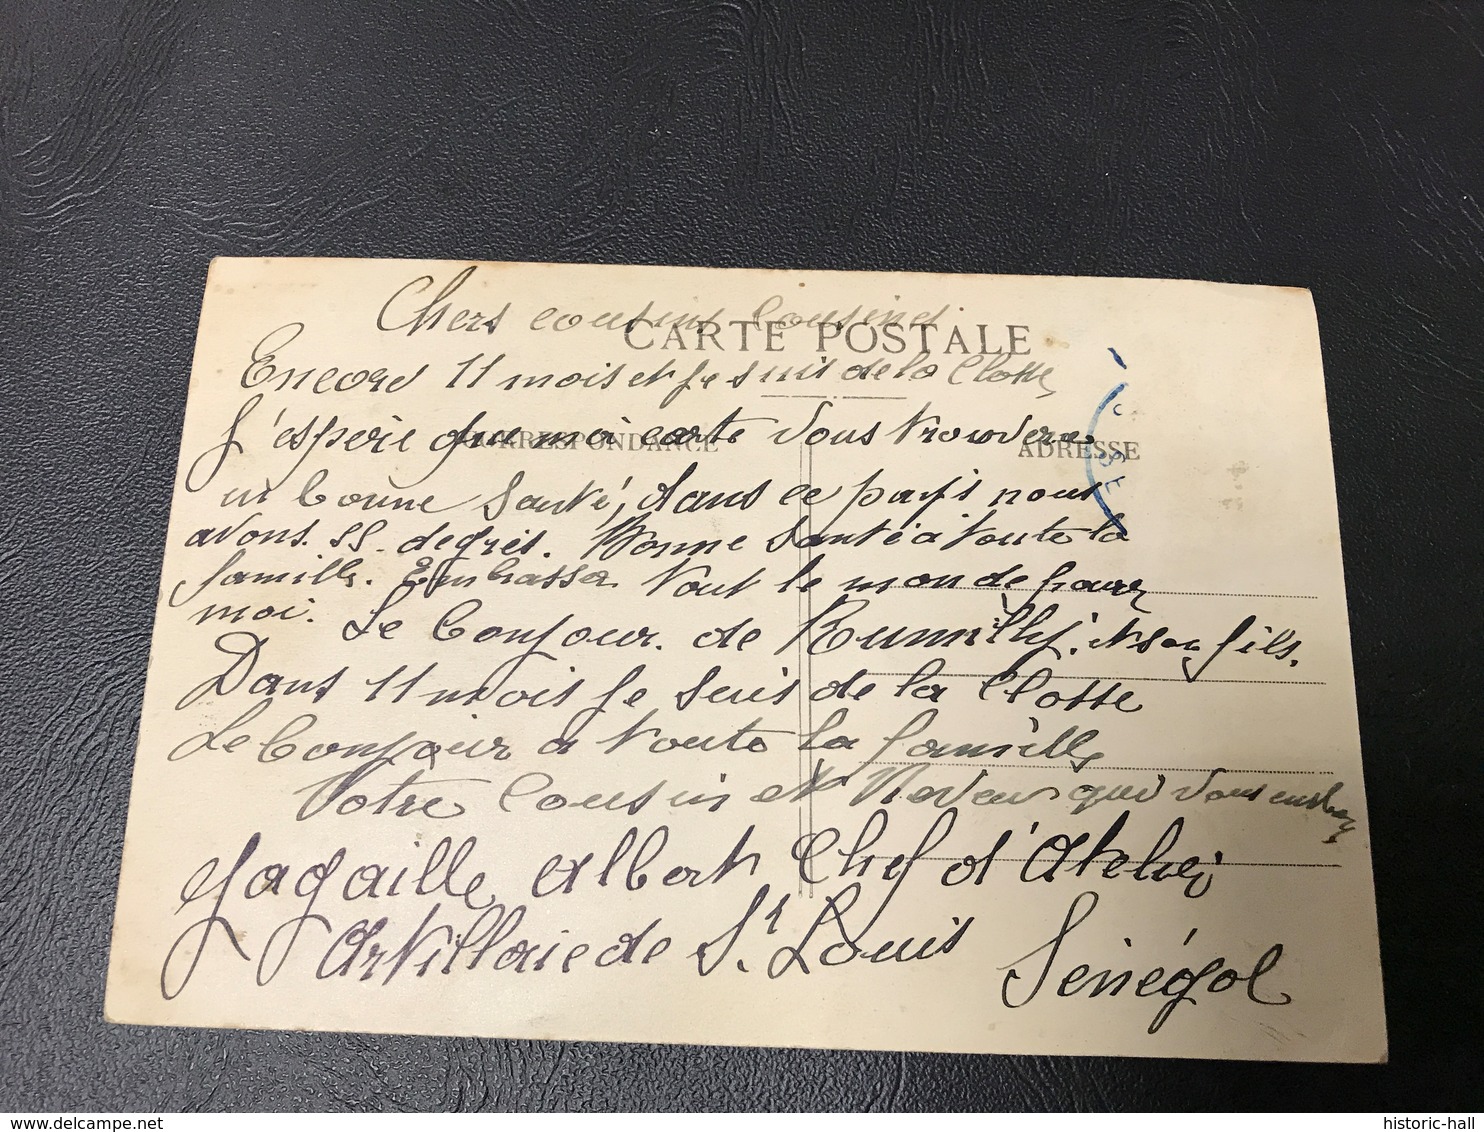 Chers cousins cousines
CARTE POSTALE
Encore 11 mois et je suis de la Classe
J'espere que ma carte vous trouvera
CORRESPONDANCE
ADRESSE
en bonne santé, dans ce pays nous
avons 55 degrés. Bonne santé a toute la
famille. Embrasser tout le monde pour
moi. Le bonjour de Rumilly et son fils.
Dans 11 mois je suis de la Classe
Le bonjour a toute la famille
Votre Cousin et Neveu qui vous embrasse
Jagaille Albert Chef d'Atelier
Artillerie de St. Louis Sénégal
historic-hall
delcampe.net